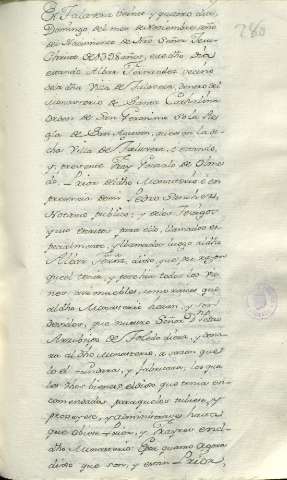 En Talavera veinte y quatro dias,
Domingo del mes de Noviembre, año
del Nacimiento de Nro Señor Jesu-
Christo de 1398 años, este dho dia
estando Alvar Fernandez vecino
de la dha Villa de Talavera, dentro del
Monasterio de Santa Cathalina
Orden de San Geronimo so la Re-
gla de San Agustin, que es en la di-
cha Villa de Talavera, e estando,
y presente Fray Gonzalo de
do, Prior del dho Monasterio è en
presencia de mi Pedro Sanchez,
Notario publico; y de los Testigos
que estavan para ello, llamados es-
pecialmente, y llamados luego el dho
Alvar Ferrnz, dixo, que por razon
que el tenia, y posehia todos los vie-
nes asi muebles, como raices que
al dho Monasterio havian, y son
dexados, que nuestro Señor Dn Pedro
Arzobispo de Toledo diera, y dona-
ra al dho Monasterio, a razon que
lo el fundara, y fabricara, los qua
les dhos bienes el dixo que tenia en-
comendados para que los rubiese, y
proveyese, y administrase hasta
que obiese Prior, y Frayres en el
dho Monasterio. E por quanto agora
dixo que son, y estan Prior,
280